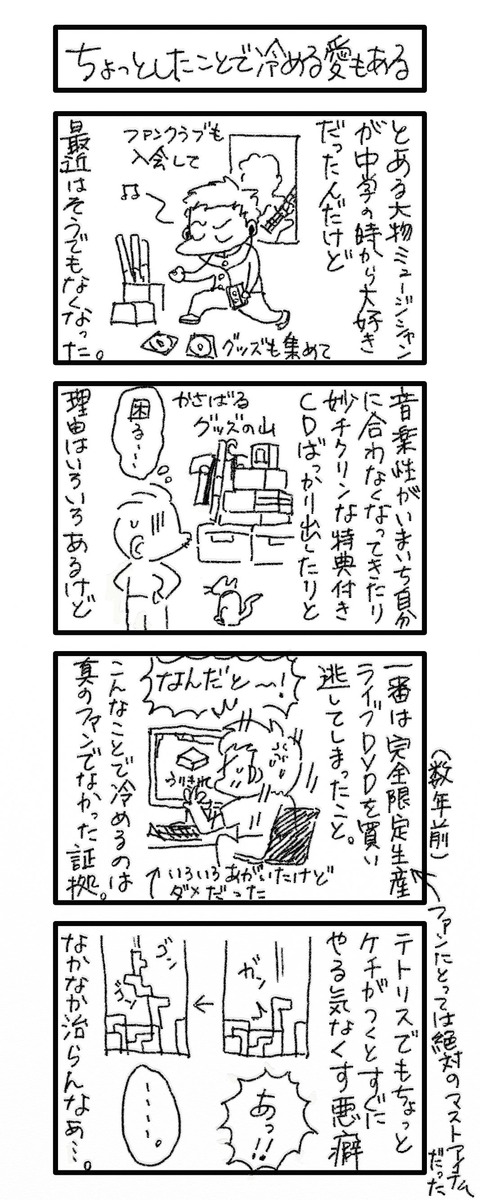 ちょっとしたことで冷める愛もある
とある大物ミュージシャン
が中学の時から大好き
だったんだけど
ファンクラブも
入会して
♫
グッズも集めて
最近はそうでもなくなった。
音楽性がいまいち自分
に合わなくなってきたり
妙チクリンな特典付き
CDばっかり出したりと
かさばる
グッズの山
困る…
理由はいろいろあるけど
一番は完全限定生産
ライブDVDを買い
逃してしまったこと。
(数年前)
ファンにとっては絶対のマストアイテム
だった
なんだと〜!
うりきれ
↑いろいろあがいたけど
ダメだった
こんなことで冷めるのは
真のファンでなかった証拠。
テトリスでもちょっと
ケチがつくとすぐに
やる気なくす悪癖
ガッ
あっ!!
←
ゴン
ゴン
……。
なかなか治らんなぁ…。